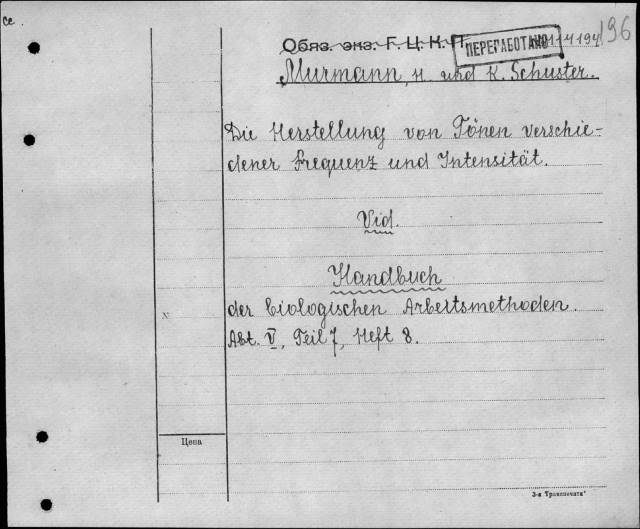 се.
196
Обяз. экз. Г. Ц. К. П.
ПЕРЕРАБОТАНО
Murmann, H. und K. Schuster.
Die Herstellung von Tönen verschie-
dener Frequenz und Intensität.
Vid.
Handbuch
der biologischen Arbeitsmethoden.
Abt. V, Teil 7, Heft 8.
№
Цена
3-я Транспечать